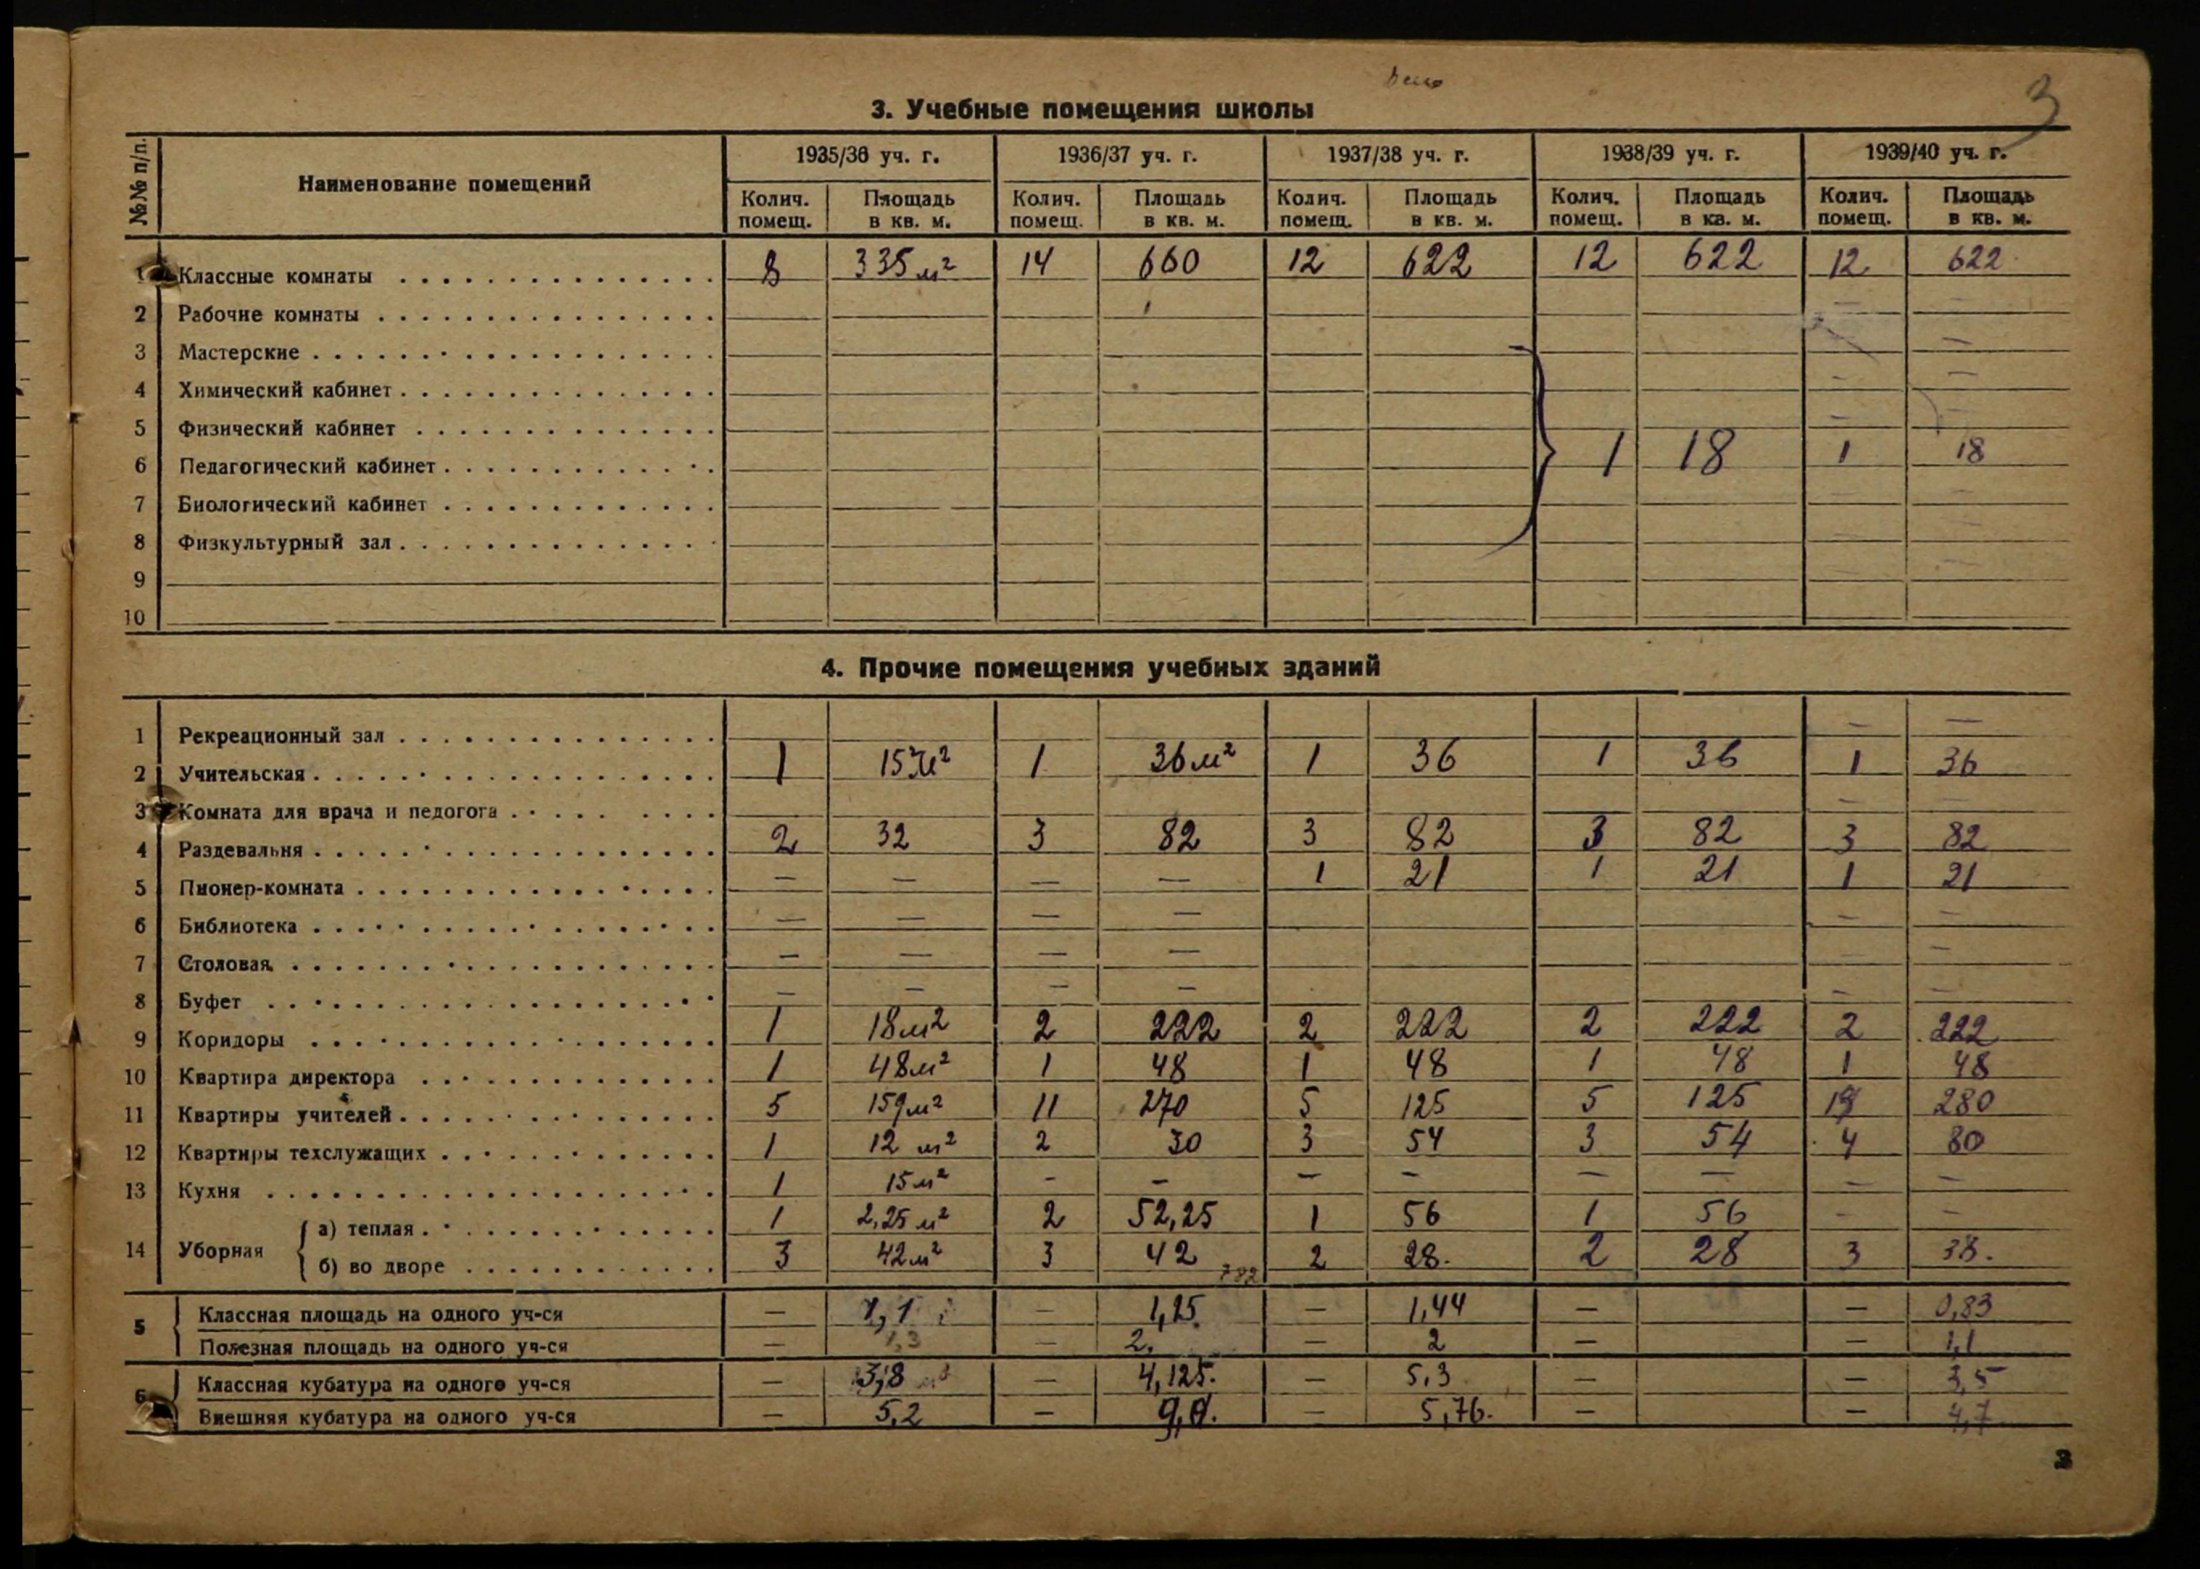 3
3. Учебные помещения школы
№№ п/п. Наименование помещений 1935/36 уч. г. 1936/37 уч. г. 1937/38 уч. г. 1938/39 уч. г. 1939/40 уч. г.
Колич. помещ. Площадь в кв. м. Колич. помещ. Площадь в кв. м. Колич. помещ. Площадь в кв. м. Колич. помещ. Площадь в кв. м. Колич. помещ. Площадь в кв. м.
1 Классные комнаты 8 335 м² 14 660 12 622 12 622 12 622
2 Рабочие комнаты
3 Мастерские —
4 Химический кабинет — —
5 Физический кабинет —
6 Педагогический кабинет 1 18 1 18
7 Биологический кабинет — —
8 Физкультурный зал
9
10
4. Прочие помещения учебных зданий
1 Рекреационный зал — —
2 Учительская 1 15 м² 1 36 м² 1 36 1 36 1 36
3 Комната для врача и педогога —
4 Раздевальня 2 32 3 82 3 82 3 82 3 82
5 Пионер-комната — — — — 1 21 1 21 1 21
6 Библиотека — — — — — —
7 Столовая — — — — — —
8 Буфет — — — — — —
9 Коридоры 1 18 м² 2 222 2 222 2 222 2 222
10 Квартира директора 1 48 м² 1 48 1 48 1 48 1 48
11 Квартиры учителей 5 159 м² 11 270 5 125 5 125 280
12 Квартиры техслужащих 1 12 м² 2 30 3 54 3 54 4 80
13 Кухня 1 15 м² — — — — — — — —
14 Уборная а) теплая 1 2,25 м² 2 52,25 1 56 1 56 — —
б) во дворе 3 42 м² 3 42 2 28. 2 28 3 38.
782
5 Классная площадь на одного уч-ся — 1,1 — 1,25 — 1,44 — — 0,83
Полезная площадь на одного уч-ся — 1,3 — 2. — 2 — — 1,1
6 Классная кубатура на одного уч-ся — 3,8 — 4,125. — 5.3 — — 3,5
Внешняя кубатура на одного уч-ся — 5,2 — — 5,76. — — 4,7
3